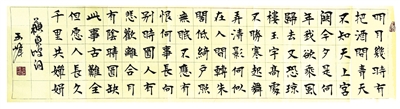 明月幾時有
把酒問青天
不知天上宮
闕今夕是何
年我欲乘風
歸去又恐瓊
樓玉宇高處
不勝寒起舞
弄清影何似
在人間轉朱
閣低綺戶照
無眠不應有
恨何事長向
別時圓人有
悲歡離合月
有陰晴圓缺
此事古難全
但願人長久
千里共嬋娟